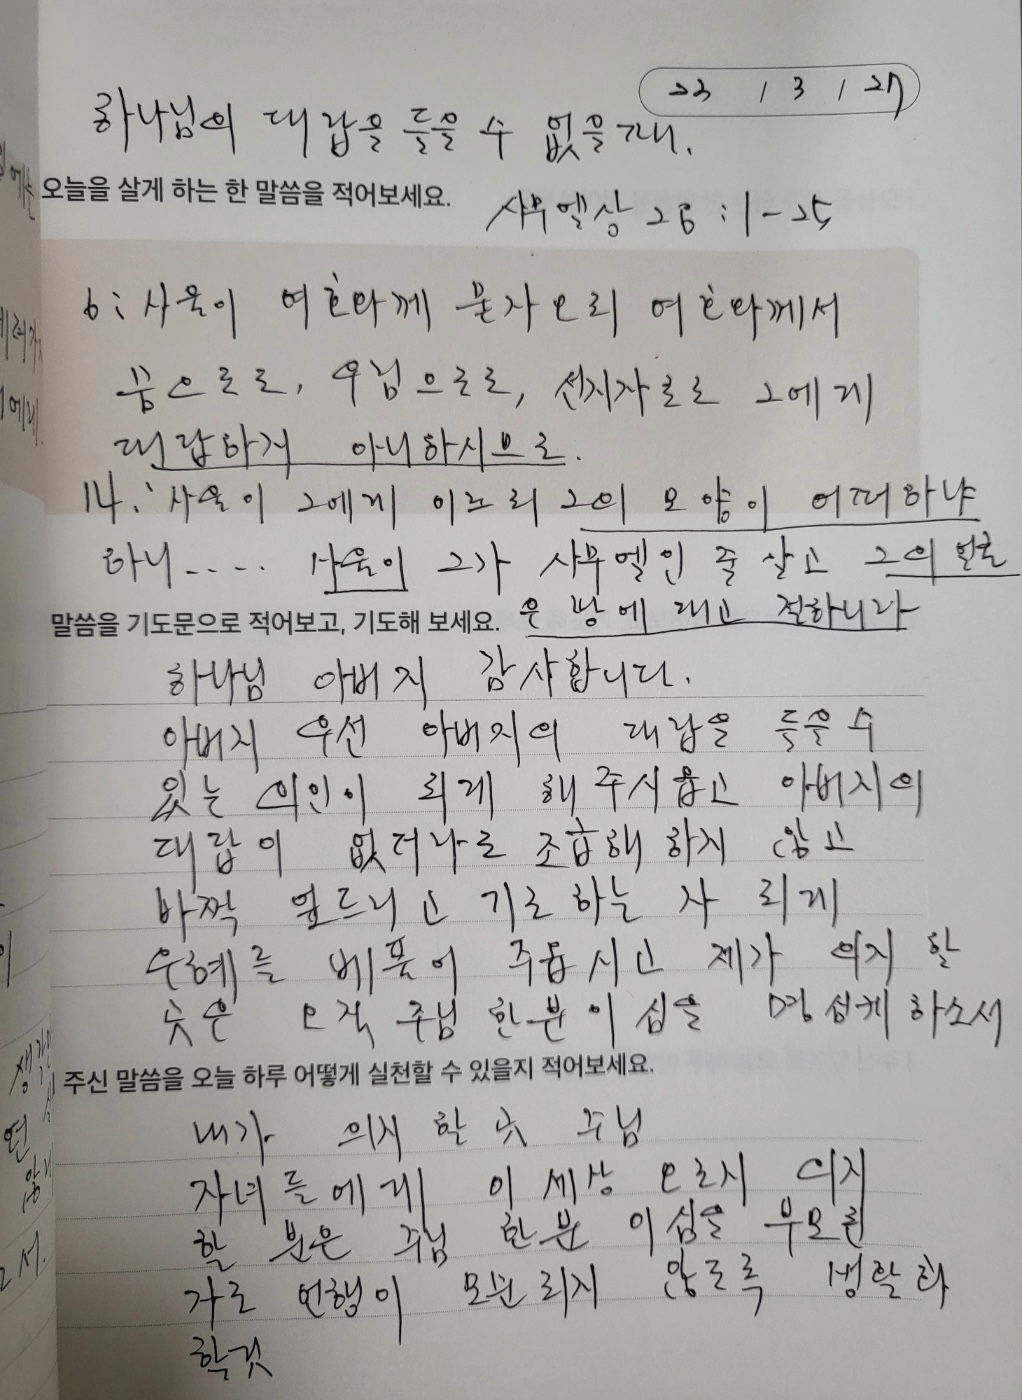 23 / 3 / 27
하나님의 대답을 들을 수 없을 때.
오늘을 살게 하는 한 말씀을 적어보세요.
사무엘상 28 : 1-25
6: 사울이 여호와께 묻자오되 여호와께서
꿈으로도, 우림으로도, 선지자로도 그에게
대답하지 아니하시므로.
14: 사울이 그에게 이르되 그의 모양이 어떠하냐
하니..... 사울이 그가 사무엘인 줄 알고 그의 얼굴
을 땅에 대고 절하니라
말씀을 기도문으로 적어보고, 기도해 보세요.
하나님 아버지 감사합니다.
아버지 우선 아버지의 대답을 들을 수
있는 의인이 되게 해 주시옵고 아버지의
대답이 없더라도 조급해 하지 않고
바짝 엎드리고 기도하는 자 되게
은혜를 베풀어 주옵시고 제가 의지 할
곳은 오직 주님 한분이심을 명심케하소서
주신 말씀을 오늘 하루 어떻게 실천할 수 있을지 적어보세요.
내가 의지 할 곳 주님
자녀들에게 이 세상 오로지 의지
할 분은 주님 한분 이심을 부모된
자로 언행이 모순되지 않도록 생활화
할것